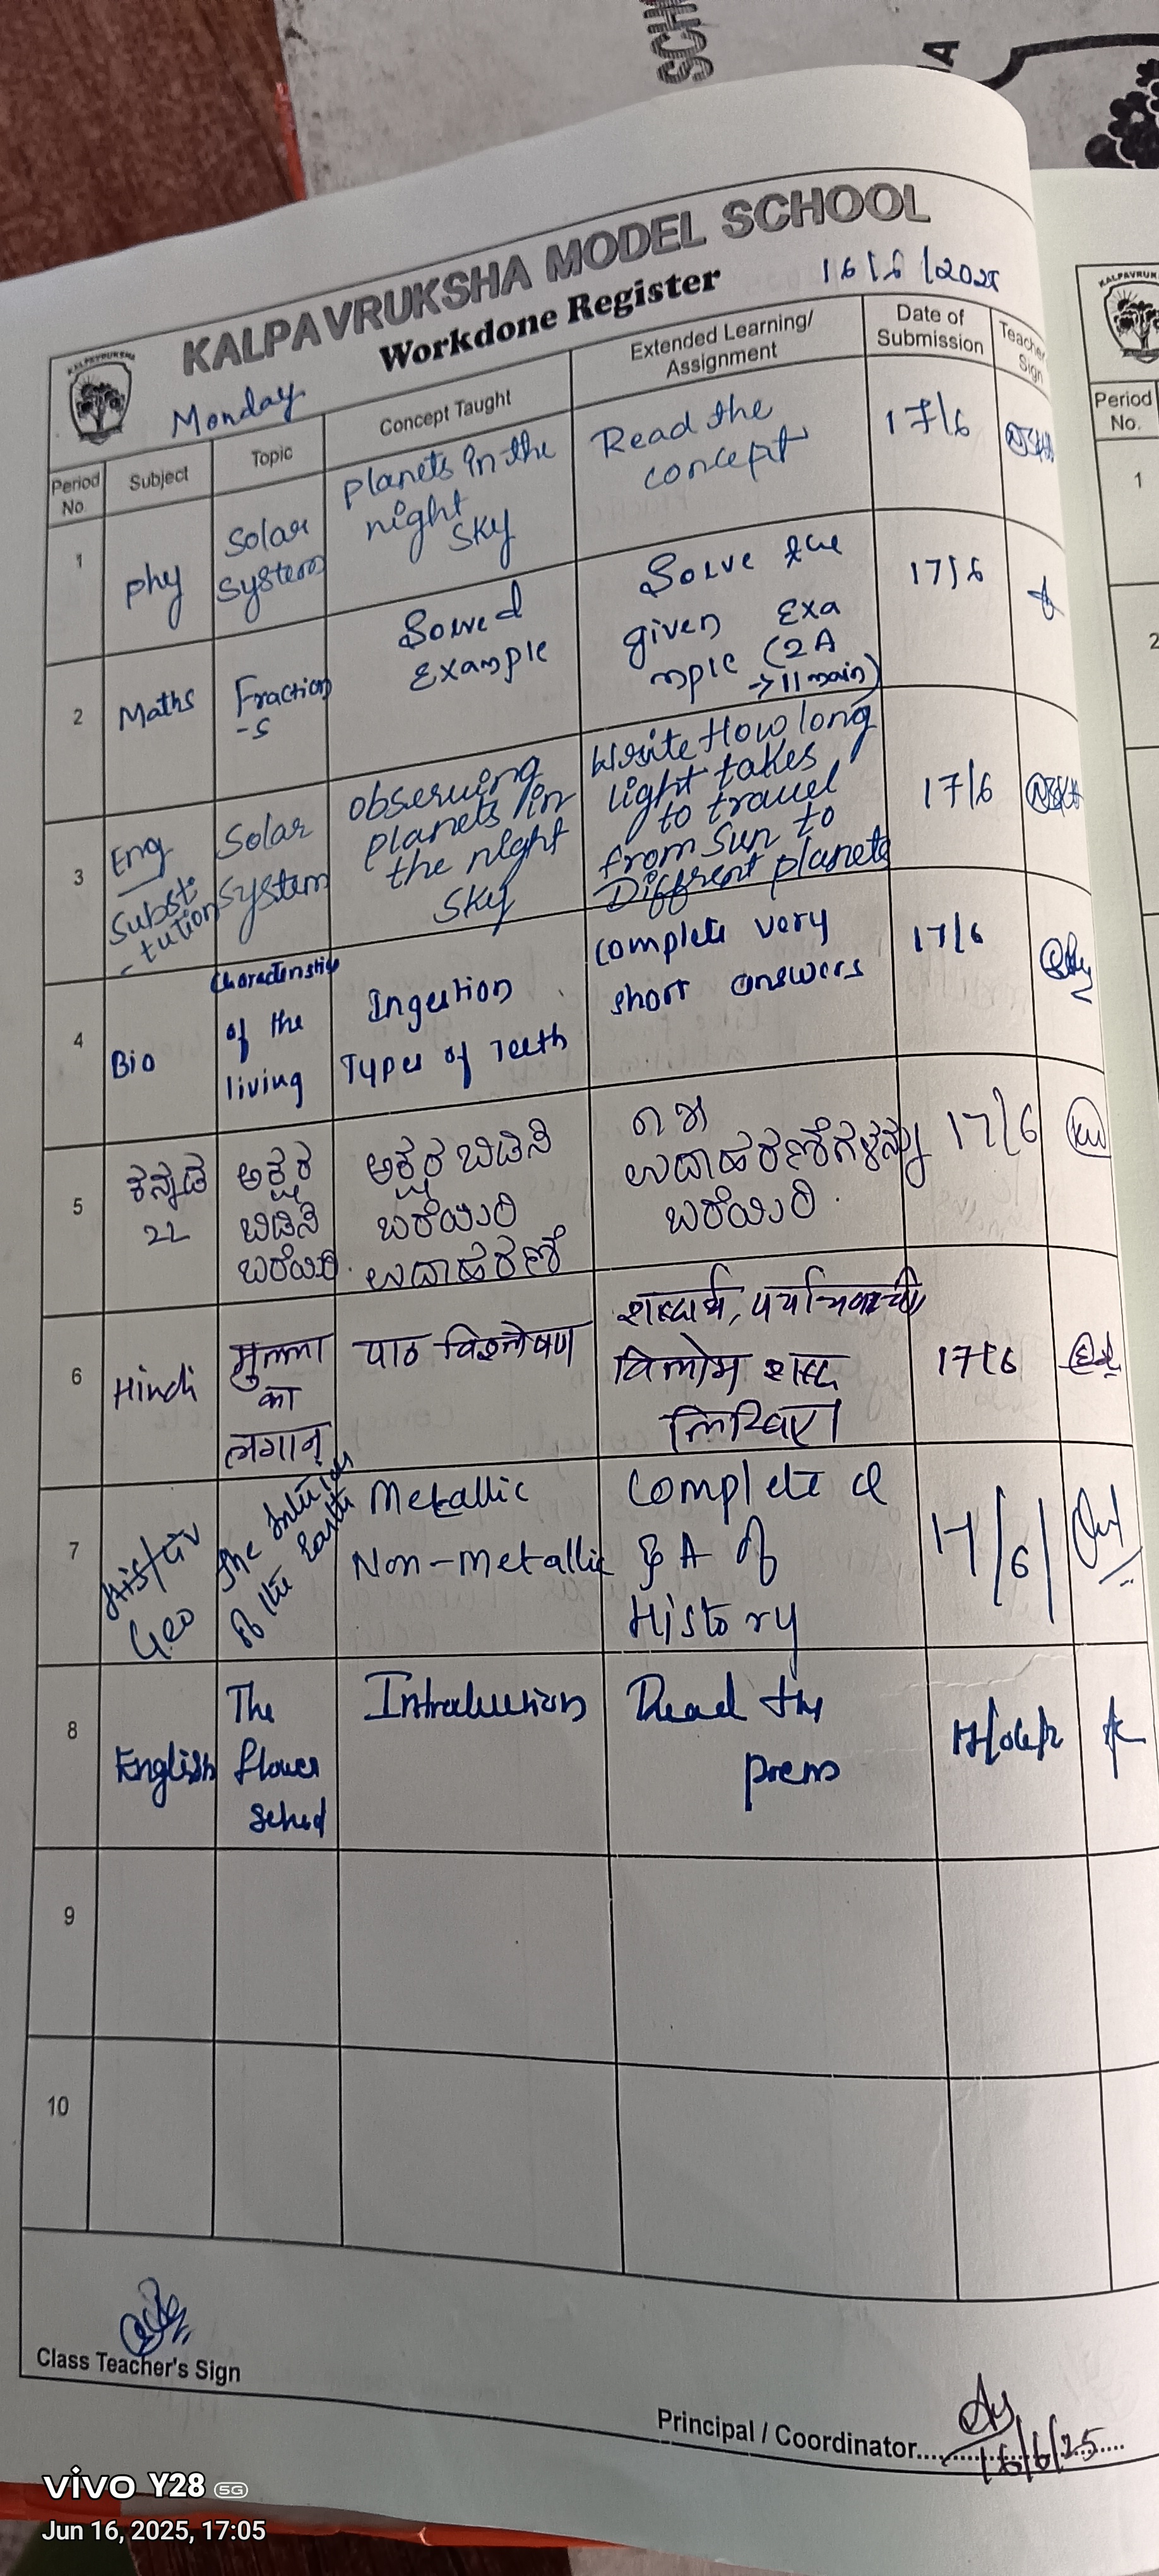 SCH
KALPAVRUKSHA MODEL SCHOOL
Workdone Register
16/6/2025
Monday
Period No.
Subject
Topic
Concept Taught
Extended Learning/ Assignment
Date of Submission
Teacher Sign
1
phy
Solar
System
planets in the
night
sky
Read the
concept
17/6
2
Maths
Fraction
-s
Solved
Example
Solve the
given Exa
mple (2A
→ 11 main)
17/6
3
Eng
Substi
-tution
Solar
System
observing
planets in
the night
sky
Write How long
light takes
to travel
from Sun to
Different planets
17/6
4
Bio
Characteristics
of the
living
Ingestion
Types of Teeth
Complete very
short answers
17/6
5
ಕನ್ನಡ
2L
ಅಕ್ಷರ
ಬಿಡಿಸಿ
ಬರೆಯಿರಿ.
ಅಕ್ಷರ ಬಿಡಿಸಿ
ಬರೆಯಿರಿ
ಉದಾಹರಣೆ
ಉದಾಹರಣೆಗಳನ್ನು
ಬರೆಯಿರಿ.
17/6
6
Hindi
मुल्ला
का
लगान
पाठ विश्लेषण
शब्दार्थ, पर्यायवाची
विलोम शब्द
लिखिए।
17/6
7
His/Civ
Geo
The Interior
of the Earth
Metallic
Non-metallic
Complete
Q & A of
History
17/6/
8
English
The
flower
School
Introduction
Read the
poem
9
10
Class Teacher's Sign
Principal / Coordinator
16/6/25
KALPAVRUK
Period No.
1
2
vivo Y28 5G
Jun 16, 2025, 17:05